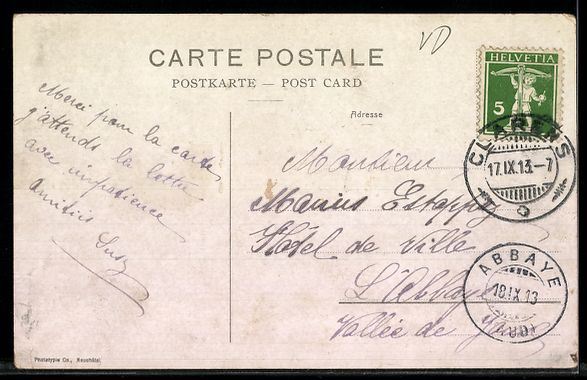 VD
CARTE POSTALE
POSTKARTE — POST CARD
Adresse
HELVETIA
5
CLARENS
17.IX.13.-7
Merci pour la carte
j'attends la lettre
avec impatience
Amitiés
Susy
Monsieur
Marius Estoppey
Hôtel de Ville
L'Abbaye
Vallée de Joux
ABBAYE
18.IX.13
Phototypie Co., Neuchâtel.